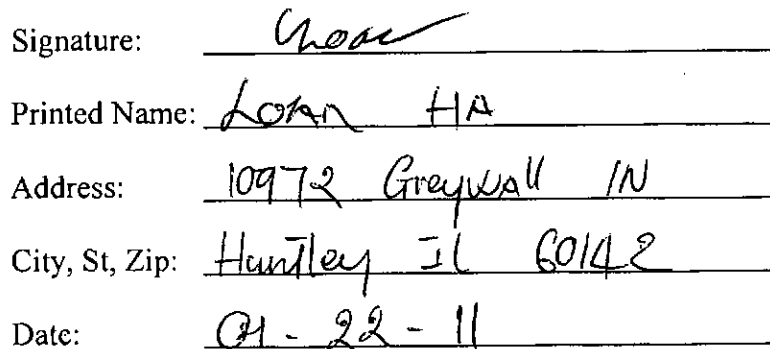 Signature:
Printed Name: Loan HA
Address: 10972 Greywall lN
City, St, Zip: Huntley IL 60142
Date: 01-22-11